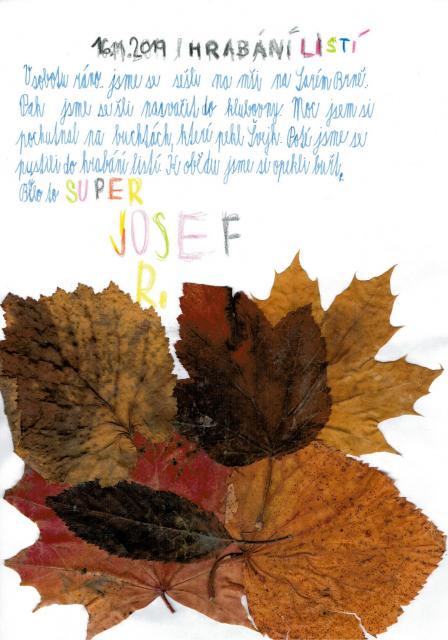 16.11.2019 HRABÁNÍ LISTÍ
V sobotu ráno jsme se sešli na mši na Starém Brně.
Pak jsme se šli nasvačit do klubovny. Moc jsem si
pochutnal na buchtách, které pekl Švejk. Poté jsme se
pustili do hrabání listí. K obědu jsme si opekli buřt.
Bylo to SUPER
JOSEF
R.